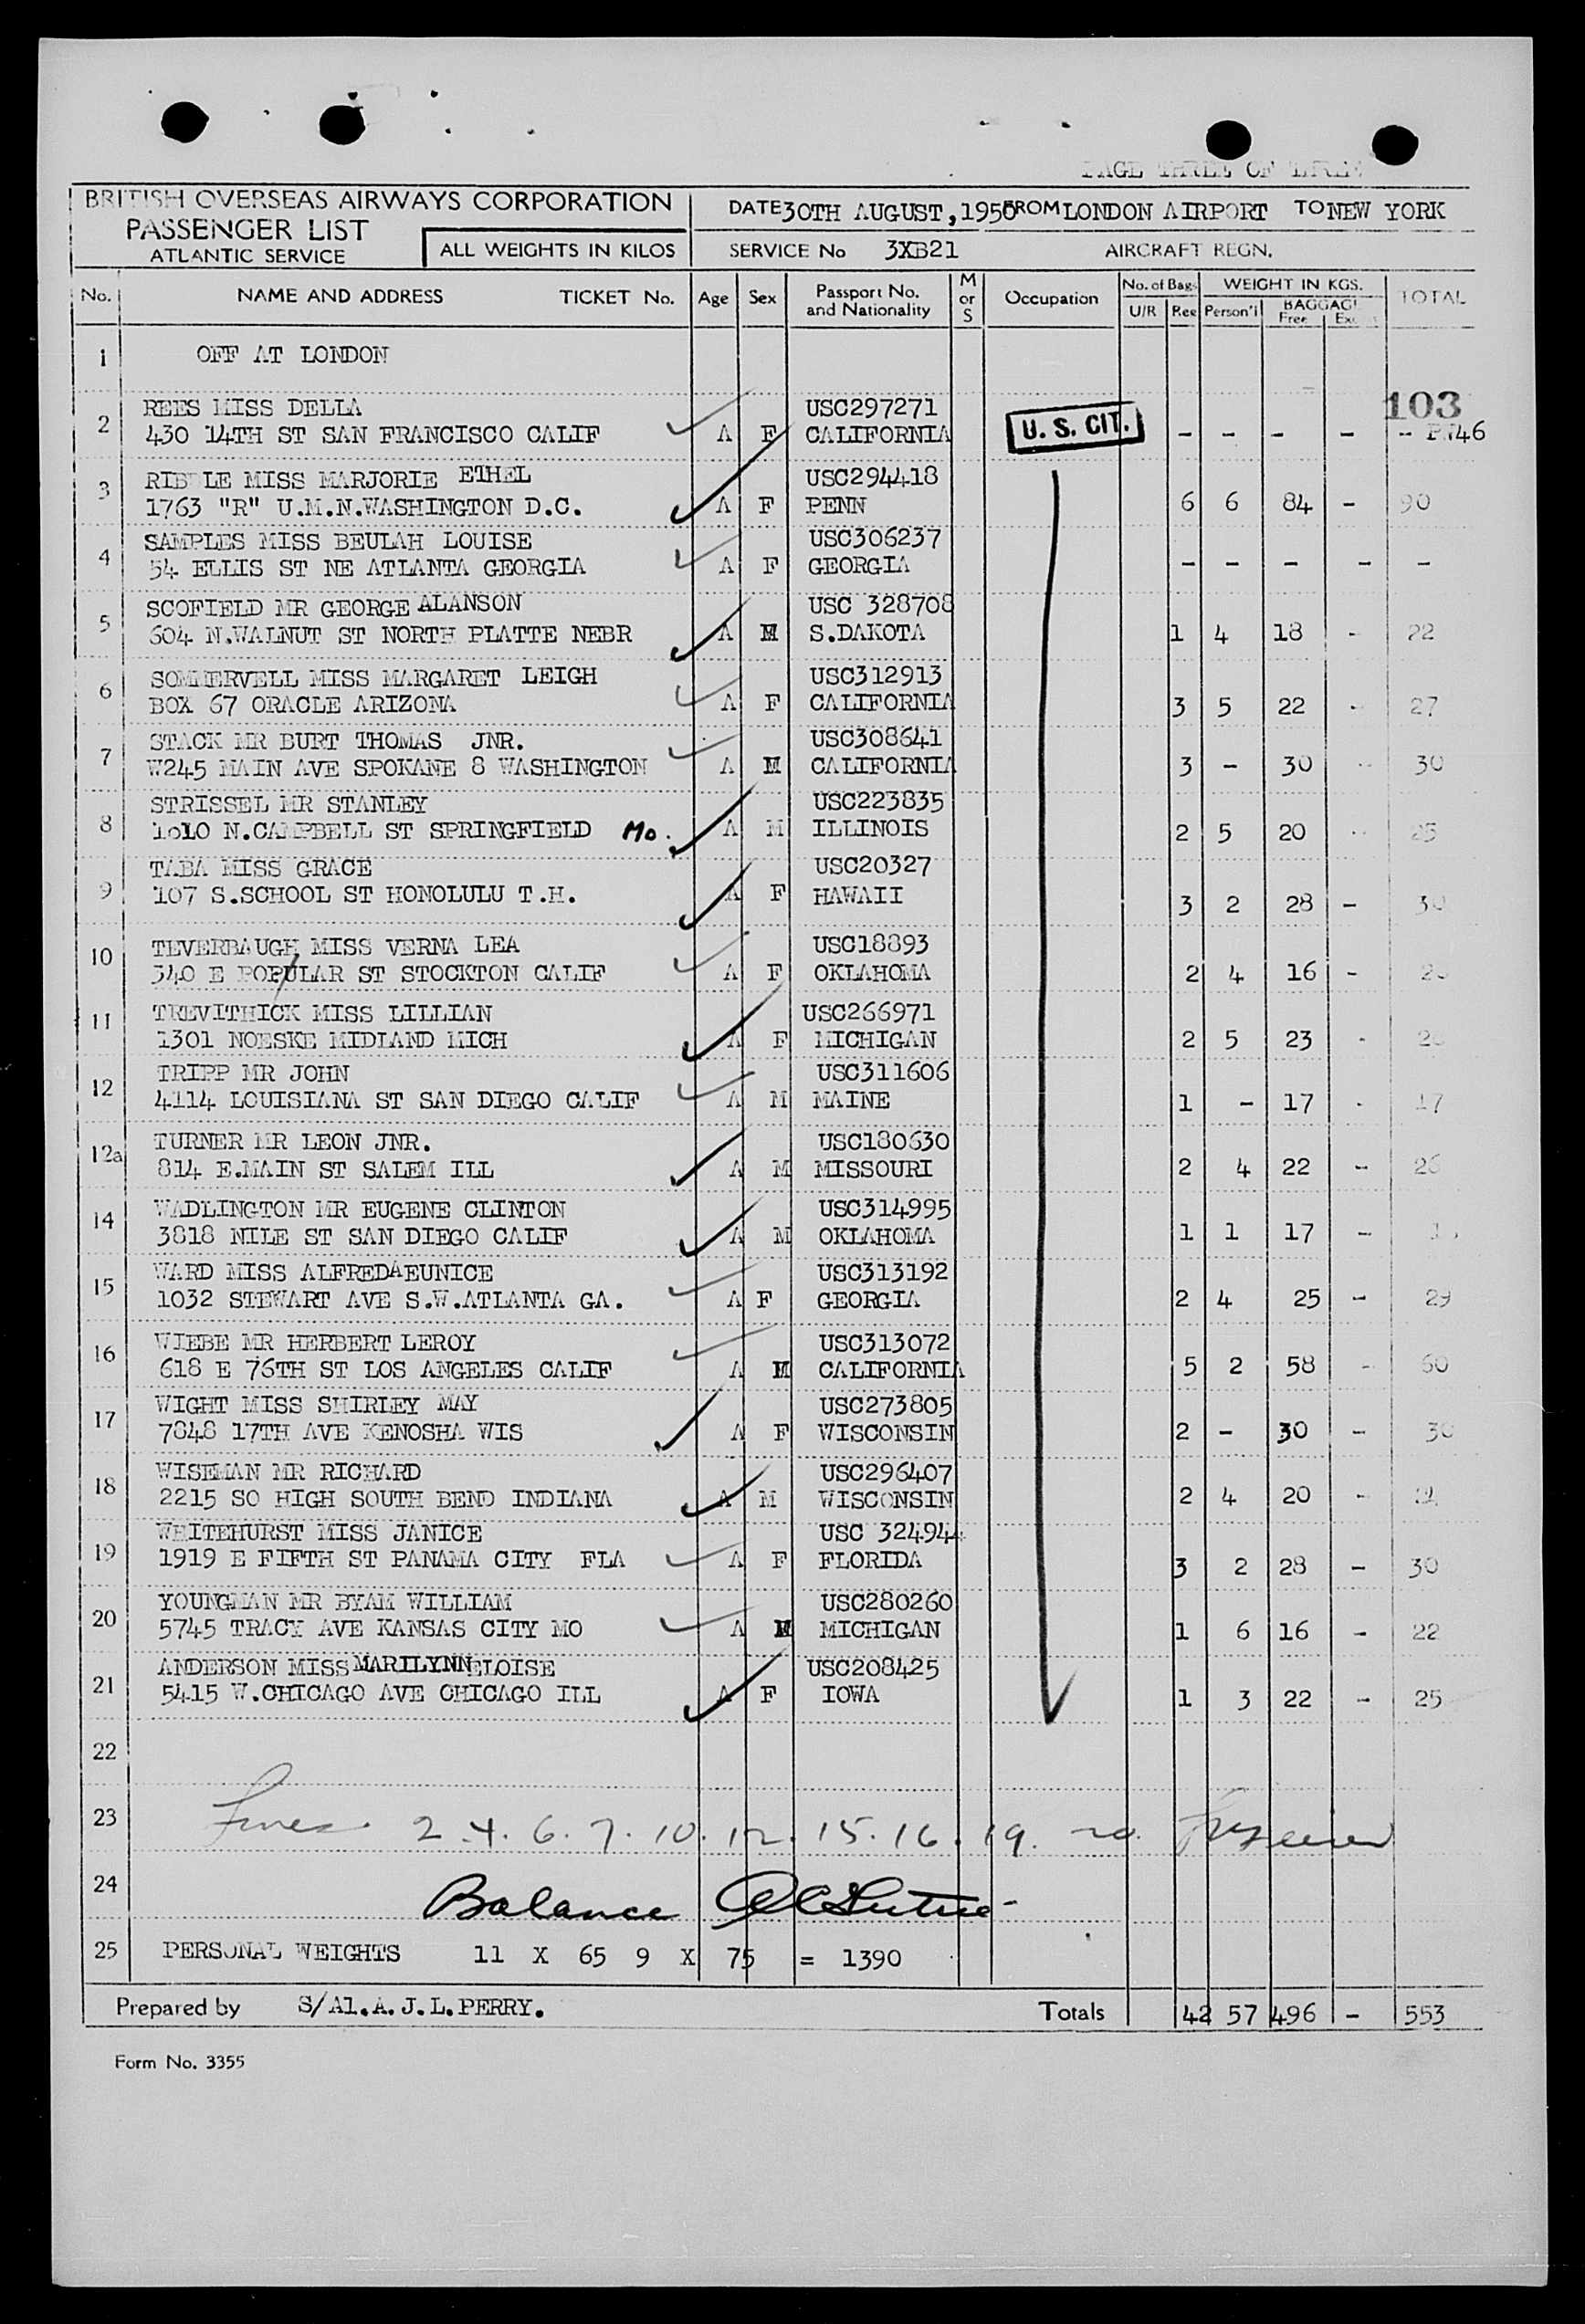 PAGE THREE OF
BRITISH OVERSEAS AIRWAYS CORPORATION
PASSENGER LIST
ATLANTIC SERVICE
ALL WEIGHTS IN KILOS
DATE 30TH AUGUST, 1950 FROM LONDON AIRPORT TO NEW YORK
SERVICE No 3XB21 AIRCRAFT REGN.
No. NAME AND ADDRESS TICKET No. Age Sex Passport No. and Nationality M or S Occupation No. of Bags U/R Reg Person'l WEIGHT IN KGS. BAGGAGE Free TOTAL
1 OFF AT LONDON
103
REES MISS DELLA USC297271
2 430 14TH ST SAN FRANCISCO CALIF A F CALIFORNIA U. S. CIT. - - - - -
RIBBLE MISS MARJORIE ETHEL USC294418
3 1763 "R" U.M.N.WASHINGTON D.C. A F PENN 6 6 84 - 90
SAMPLES MISS BEULAH LOUISE USC306237
4 54 ELLIS ST NE ATLANTA GEORGIA A F GEORGIA - - - - -
SCOFIELD MR GEORGE ALANSON USC 328708
5 604 N.WALNUT ST NORTH PLATTE NEBR A M S.DAKOTA 1 4 18 - 22
SOMMERVELL MISS MARGARET LEIGH USC312913
6 BOX 67 ORACLE ARIZONA A F CALIFORNIA 3 5 22 - 27
STACK MR BURT THOMAS JNR. USC308641
7 W245 MAIN AVE SPOKANE 8 WASHINGTON A M CALIFORNIA 3 - 30 - 30
STRISSEL MR STANLEY USC223835
8 1010 N.CAMPBELL ST SPRINGFIELD Mo. A M ILLINOIS 2 5 20 - 25
TABA MISS GRACE USC20327
9 107 S.SCHOOL ST HONOLULU T.H. A F HAWAII 3 2 28 - 30
TEVERBAUGH MISS VERNA LEA USC18893
10 340 E POPULAR ST STOCKTON CALIF A F OKLAHOMA 2 4 16 -
TREVITHICK MISS LILLIAN USC266971
11 1301 NOESKE MIDLAND MICH A F MICHIGAN 2 5 23 -
TRIPP MR JOHN USC311606
12 4114 LOUISIANA ST SAN DIEGO CALIF A M MAINE 1 - 17 - 17
TURNER MR LEON JNR. USC180630
12a 814 E.MAIN ST SALEM ILL A M MISSOURI 2 4 22 - 26
WADLINGTON MR EUGENE CLINTON USC314995
14 3818 NILE ST SAN DIEGO CALIF A M OKLAHOMA 1 1 17 -
WARD MISS ALFREDA EUNICE USC313192
15 1032 STEWART AVE S.W.ATLANTA GA. A F GEORGIA 2 4 25 - 29
WIEBE MR HERBERT LEROY USC313072
16 618 E 76TH ST LOS ANGELES CALIF A M CALIFORNIA 5 2 58 - 60
WIGHT MISS SHIRLEY MAY USC273805
17 7848 17TH AVE KENOSHA WIS A F WISCONSIN 2 - 30 - 30
WISEMAN MR RICHARD USC296407
18 2215 SO HIGH SOUTH BEND INDIANA A M WISCONSIN 2 4 20 -
WHITEHURST MISS JANICE USC 324944
19 1919 E FIFTH ST PANAMA CITY FLA A F FLORIDA 3 2 28 - 30
YOUNGMAN MR BYAM WILLIAM USC280260
20 5745 TRACY AVE KANSAS CITY MO A M MICHIGAN 1 6 16 - 22
ANDERSON MISS MARILYNN ELOISE USC208425
21 5415 W.CHICAGO AVE CHICAGO ILL A F IOWA 1 3 22 - 25
22
23 2. 4. 6. 7. 10. 12. 15. 16. 19. 20.
24 Balance
25 PERSONAL WEIGHTS 11 X 65 9 X 75 = 1390
Prepared by S/Al.A.J.L.PERRY. Totals 42 57 496 - 553
Form No. 3355